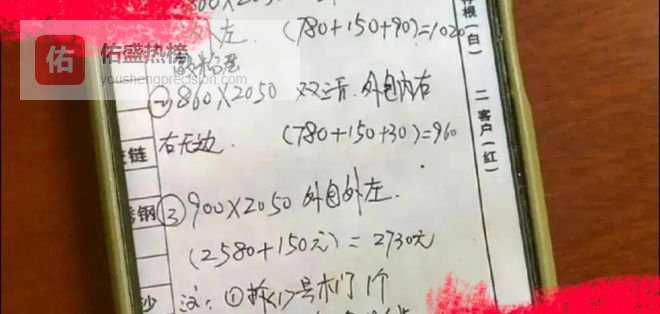 800×2050
外左. (780+150+90)=1020
佑
佑盛热榜
youshengprecision.com
② 860×2050 双三后. 外包内右
右无边. (780+150+30)=960
③ 900×2050 外包外左.
(2580+150元)=2730元
注: ①拆<1>号木门1个
存根(白)
二客户(红)
链
锈钢
沙